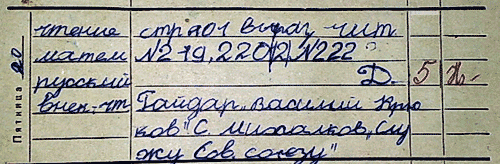 Пятница 20
чтение стр 101 выраз. чит
матем №219, 220(2) №222
русский Д. 5
внек. чт Гайдар „Василий Крю
ков" С. Михалков „Слу
жу Сов. союзу"